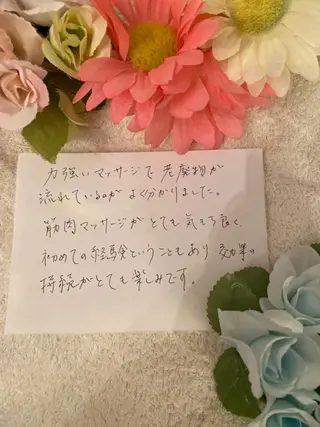 力強いマッサージで老廃物が
流れているのがよく分かりました。
筋肉マッサージがとても気もち良く、
初めての経験ということもあり 効果の
持続がとても楽しみです。